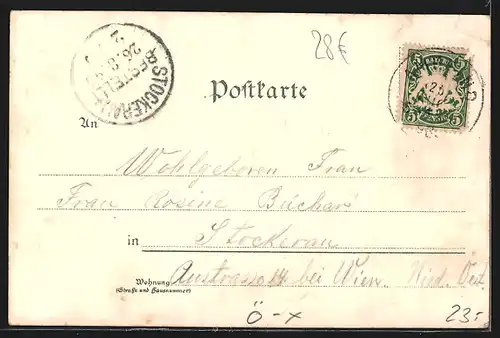 28€
STOCKERAU
BESTELLT
26.8.
Postkarte
BAYERN
5 PFENNIG 5
An
Wohlgeboren Frau
Frau Rosine Büchar
in Stockerau
Wohnung
(Straße und Hausnummer)
bei Wien. Nied. Oest.
Ö-x
23.-